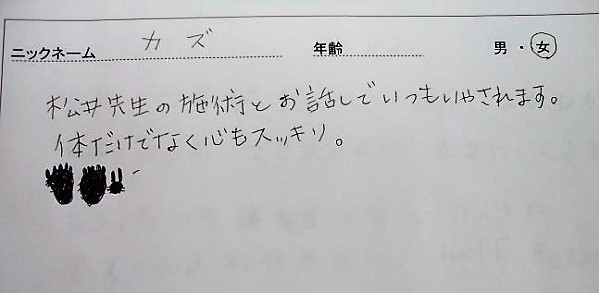 ニックネーム カズ 年齢 男・女
松井先生の施術とお話しでいつもいやされます。
体だけでなく心もスッキリ。